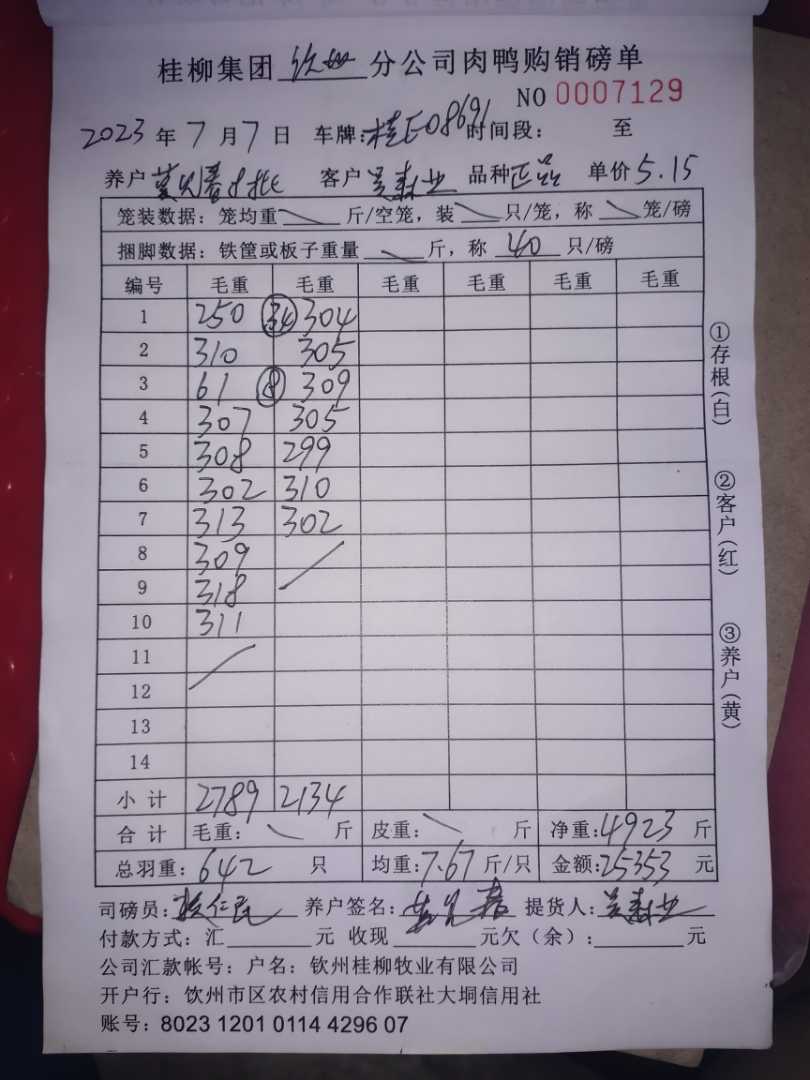 桂柳集团 钦州 分公司肉鸭购销磅单
NO 0007129
2023 年 7 月 7 日 车牌:桂E08691 时间段: 至
养户 客户 吴森业 品种 正品 单价 5.15
笼装数据:笼均重 斤/空笼,装 只/笼,称 笼/磅
捆脚数据:铁筐或板子重量 斤,称 40 只/磅
编号 毛重 毛重 毛重 毛重 毛重 毛重
1 250 34 304
2 310 305
3 61 8 309
4 307 305
5 308 299
6 302 310
7 313 302
8 309
9 318
10 311
11
12
13
14
小计 2789 2134
合计 毛重: 斤 皮重: 斤 净重:4923 斤
总羽重:642 只 均重:7.67 斤/只 金额:25353 元
司磅员: 养户签名: 提货人:吴森业
付款方式:汇 元 收现 元欠(余): 元
公司汇款帐号:户名:钦州桂柳牧业有限公司
开户行:饮州市区农村信用合作联社大垌信用社
账号:8023 1201 0114 4296 07
①存根(白)
②客户(红)
③养户(黄)